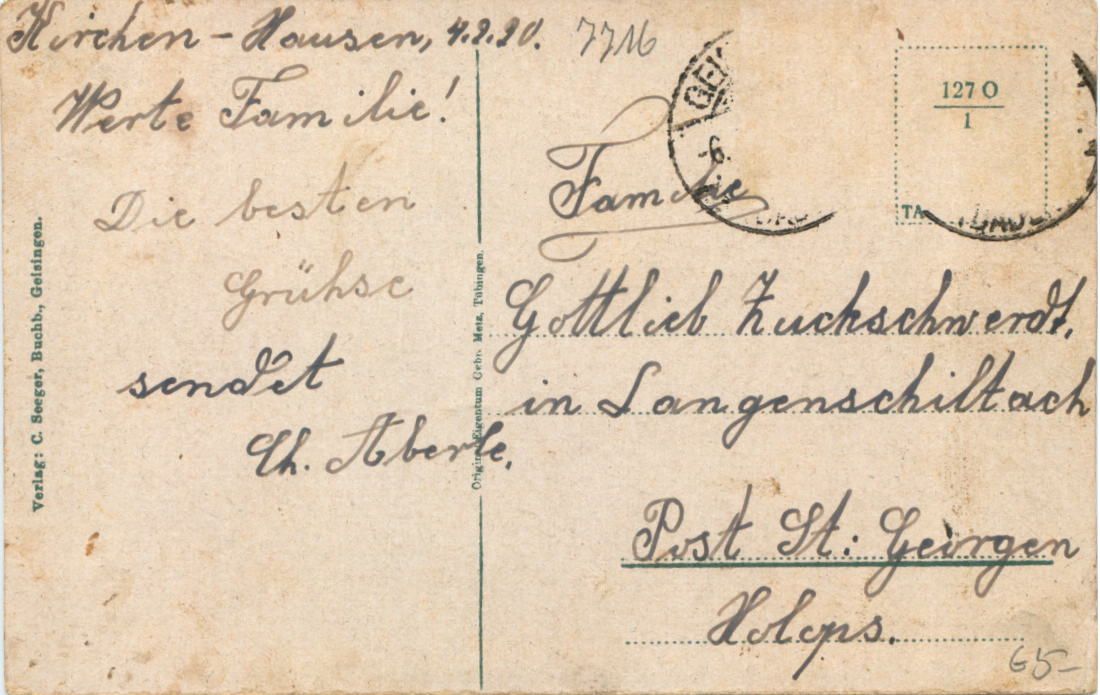 Kirchen - Hausen, 4.2.20.
7716
Werte Familie!
Die besten
Grühse
sendet
Ch. Aberle.
Verlag: C. Seeger, Buchb., Geisingen.
Original-Eigentum Gebr. Metz, Tübingen.
127 O
1
TA
GEI
-6.
Familie
Gottlieb Zuckschwerdt,
in Langenschiltach
Post St. Georgen
65-